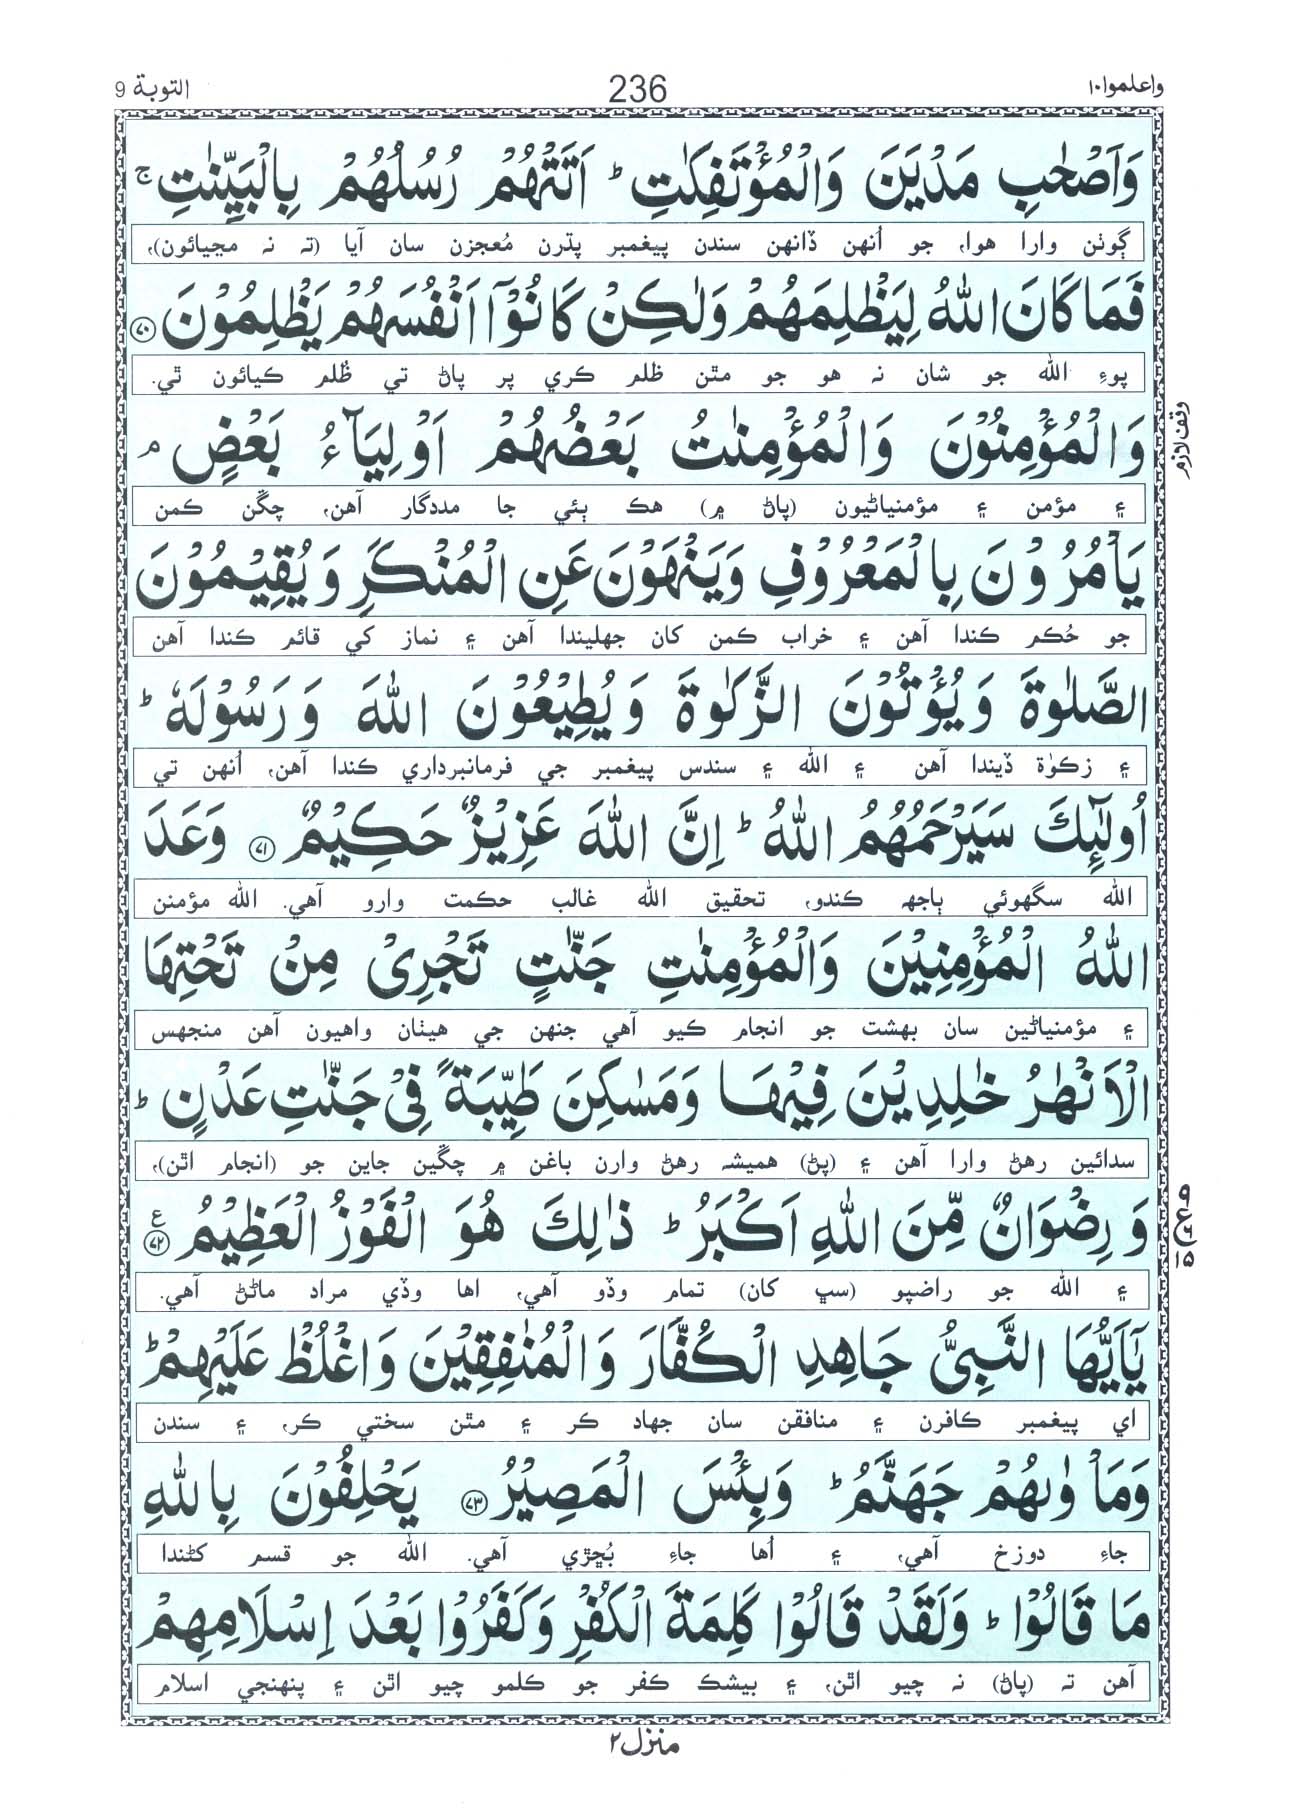 واعلموا١٠ 236 التوبة 9
وَاَصْحٰبِ مَدْيَنَ وَالْمُؤْتَفِكٰتِ ؕ اَتَتْهُمْ رُسُلُهُمْ بِالْبَيِّنٰتِ ۚ
ڳوٺن وارا هوا، جو اُنهن ڏانهن سندن پيغمبر پڌرن مُعجزن سان آيا (ته نه مڃيائون)،
فَمَا كَانَ اللّٰهُ لِيَظْلِمَهُمْ وَلٰكِنْ كَانُوْٓا اَنْفُسَهُمْ يَظْلِمُوْنَ ۝٧٠
پوءِ الله جو شان نه هو جو مٿن ظلم ڪري پر پاڻ تي ظُلم ڪيائون ٿي.
وَالْمُؤْمِنُوْنَ وَالْمُؤْمِنٰتُ بَعْضُهُمْ اَوْلِيَآءُ بَعْضٍ ۘ
وقف لازم
۽ مؤمن ۽ مؤمنياڻيون (پاڻ ۾) هڪ ٻئي جا مددگار آهن، چڱن ڪمن
يَاْمُرُوْنَ بِالْمَعْرُوْفِ وَيَنْهَوْنَ عَنِ الْمُنْكَرِ وَيُقِيْمُوْنَ
جو حُڪم ڪندا آهن ۽ خراب ڪمن کان جھليندا آهن ۽ نماز کي قائم ڪندا آهن
الصَّلٰوةَ وَيُؤْتُوْنَ الزَّكٰوةَ وَيُطِيْعُوْنَ اللّٰهَ وَرَسُوْلَهٗ ؕ
۽ زڪوٰة ڏيندا آهن ۽ الله ۽ سندس پيغمبر جي فرمانبرداري ڪندا آهن، اُنهن تي
اُولٰٓئِكَ سَيَرْحَمُهُمُ اللّٰهُ ؕ اِنَّ اللّٰهَ عَزِيْزٌ حَكِيْمٌ ۝٧١ وَعَدَ
الله سگهوئي ٻاجهه ڪندو، تحقيق الله غالب حڪمت وارو آهي. الله مؤمنن
اللّٰهُ الْمُؤْمِنِيْنَ وَالْمُؤْمِنٰتِ جَنّٰتٍ تَجْرِىْ مِنْ تَحْتِهَا
۽ مؤمنياڻين سان بهشت جو انجام ڪيو آهي جنهن جي هيٺان واهيون آهن منجهس
الْاَنْهٰرُ خٰلِدِيْنَ فِيْهَا وَمَسٰكِنَ طَيِّبَةً فِىْ جَنّٰتِ عَدْنٍ ؕ
سدائين رهڻ وارا آهن ۽ (پڻ) هميشه رهڻ وارن باغن ۾ چڱين جاين جو (انجام اٿن)،
وَرِضْوَانٌ مِّنَ اللّٰهِ اَكْبَرُ ؕ ذٰلِكَ هُوَ الْفَوْزُ الْعَظِيْمُ ۝٧٢ ع
۽ الله جو راضپو (سڀ کان) تمام وڏو آهي، اها وڏي مراد ماڻڻ آهي.
يٰۤاَيُّهَا النَّبِىُّ جَاهِدِ الْكُفَّارَ وَالْمُنٰفِقِيْنَ وَاغْلُظْ عَلَيْهِمْ ؕ
اي پيغمبر ڪافرن ۽ منافقن سان جهاد ڪر ۽ مٿن سختي ڪر، ۽ سندن
وَمَاْوٰىهُمْ جَهَنَّمُ ؕ وَبِئْسَ الْمَصِيْرُ ۝٧٣ يَحْلِفُوْنَ بِاللّٰهِ
جاءِ دوزخ آهي، ۽ اُها جاءِ بُڇڙي آهي. الله جو قسم کڻندا
مَا قَالُوْا ؕ وَلَقَدْ قَالُوْا كَلِمَةَ الْكُفْرِ وَكَفَرُوْا بَعْدَ اِسْلَامِهِمْ
آهن ته (پاڻ) نه چيو اٿن، ۽ بيشڪ ڪفر جو ڪلمو چيو اٿن ۽ پنهنجي اسلام
منزل٢